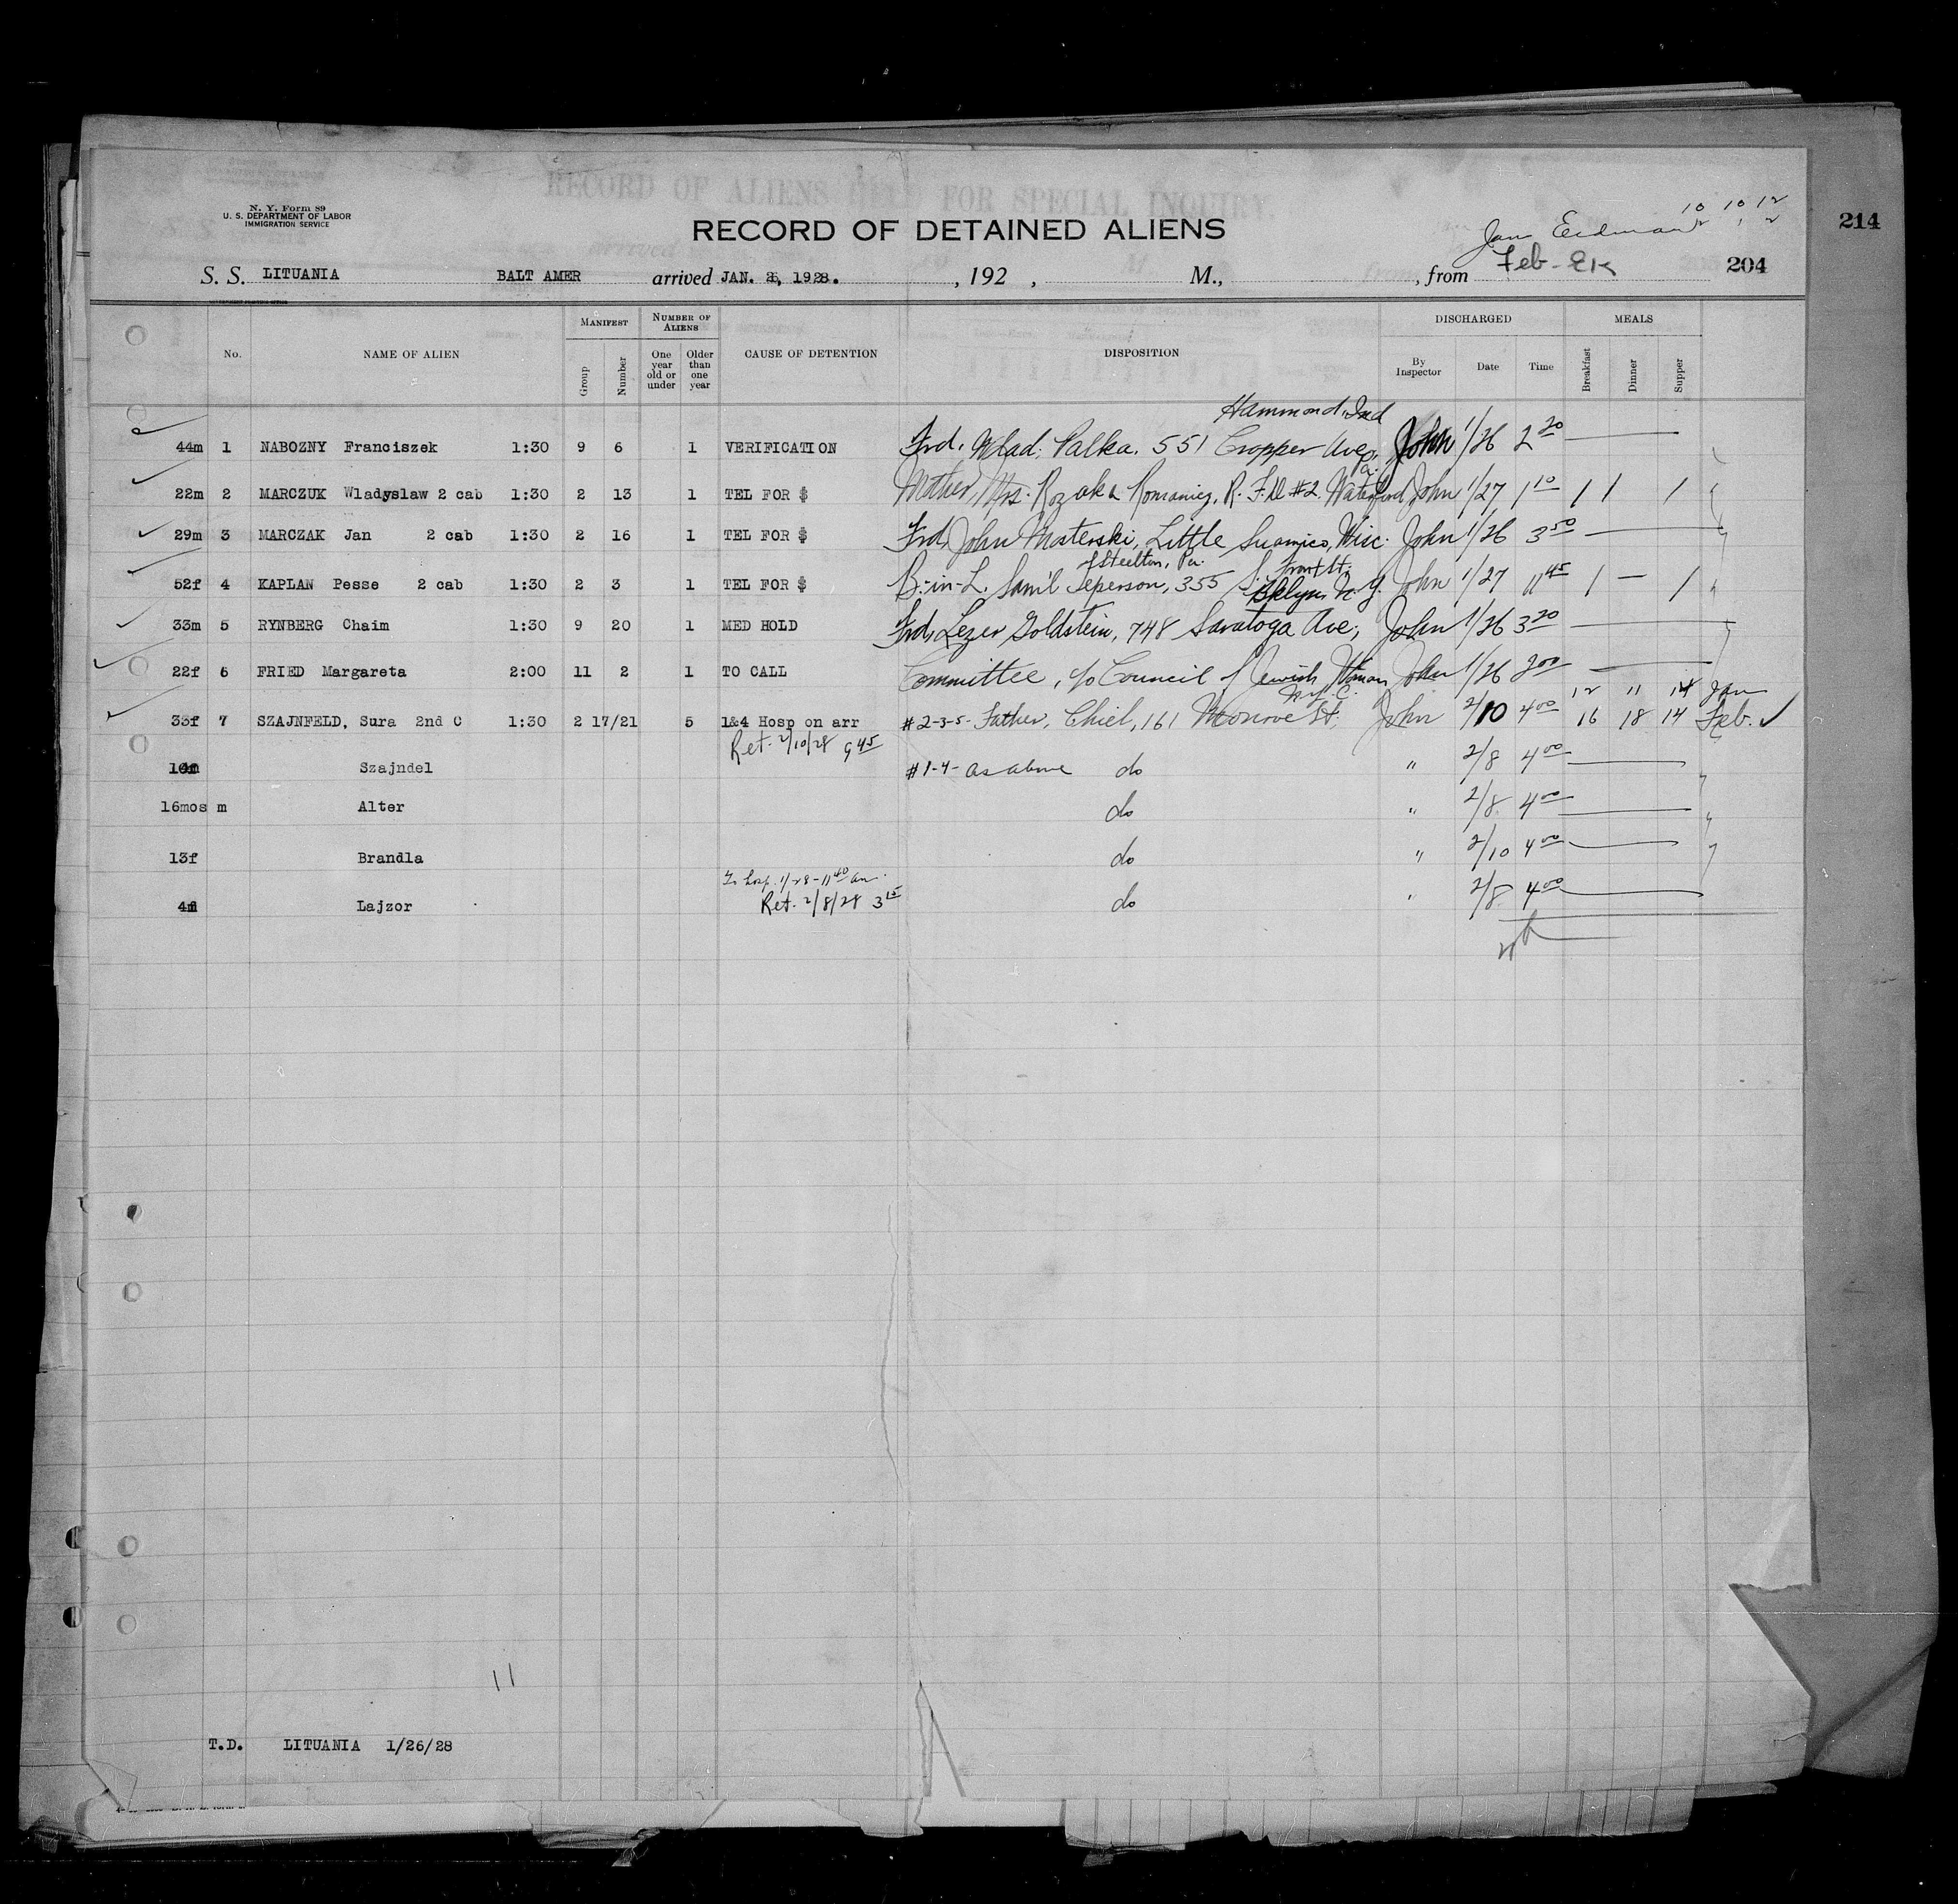 214
N. Y. Form 89
U. S. DEPARTMENT OF LABOR
IMMIGRATION SERVICE
RECORD OF ALIENS HELD FOR SPECIAL INQUIRY.
RECORD OF DETAINED ALIENS
10 10 12
Jan Eedman 2 1 2
S. S. LITUANIA BALT AMER arrived JAN. , 1928. , 192 , M., , from Feb - EK 204
No. NAME OF ALIEN MANIFEST Group Number NUMBER OF ALIENS One year old or under Older than one year CAUSE OF DETENTION DISPOSITION DISCHARGED By Inspector Date Time MEALS Breakfast Dinner Supper
Hammond, Ind
44m 1 NABOZNY Franciszek 1:30 9 6 1 VERIFICATION Frd. Wlad. Palka. 551 Cropper Ave, John 1/26 2 20
22m 2 MARCZUK Wladyslaw 2 cab 1:30 2 13 1 TEL FOR $ Mother, Mrs. Rozaka Romaniez, R. F. D. #2. Waterford Pa. John 1/27 1 10 1 1 1
29m 3 MARCZAK Jan 2 cab 1:30 2 16 1 TEL FOR $ Frd John Materski, Little Suamico, Wisc. John 1/26 3 50
of Steelton, Pa.
52f 4 KAPLAN Pesse 2 cab 1:30 2 3 1 TEL FOR $ B.-in-L. Sam'l Seperson, 355 S. Front St. John 1/27 11 45 1 — 1
Bklyn N.Y.
33m 5 RYNBERG Chaim 1:30 9 20 1 MED HOLD Frd, Lezer Goldstein, 748 Saratoga Ave, John 1/26 3 20
22f 6 FRIED Margareta 2:00 11 2 1 TO CALL Committee, c/o Council of Jewish Woman John 1/26 2 00
N.Y.C. 12 11 14 Jan
33f 7 SZAJNFELD, Sura 2nd C 1:30 2 17/21 5 1&4 Hosp on arr #2-3-5- Father, Chiel, 161 Monroe St. John 2/10 4 00 16 18 14 Feb. ✓
Ret. 2/10/28 9 45
Szajndel #1-4- as above do " 2/8 4 00
16mos m Alter do " 2/8 4 00
13f Brandla do " 2/10 4 00
To hosp. 1/28 - 11 40 am.
Lajzor Ret. 2/8/28 3 15 do " 2/8 4 00
11
T.D. LITUANIA 1/26/28